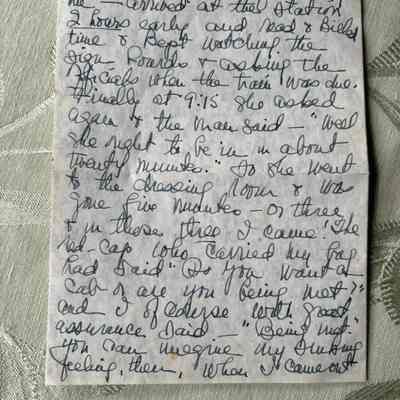 me — arrived at the station
2 hours early and read & bided
time & kept watching the
sign boards & asking the
officials when the train was due.
Finally at 9:15 she asked
again & the man said — "Well
she ought to be in in about
twenty minutes." So she went
to the dressing room & was
gone five minutes — or three
& in those three I came! The
red-cap who carried my bag
had said "Do you want a
cab or are you being met?"
and I of course with great
assurance said — "Being met."
You can imagine my sinking
feeling, then, when I came out